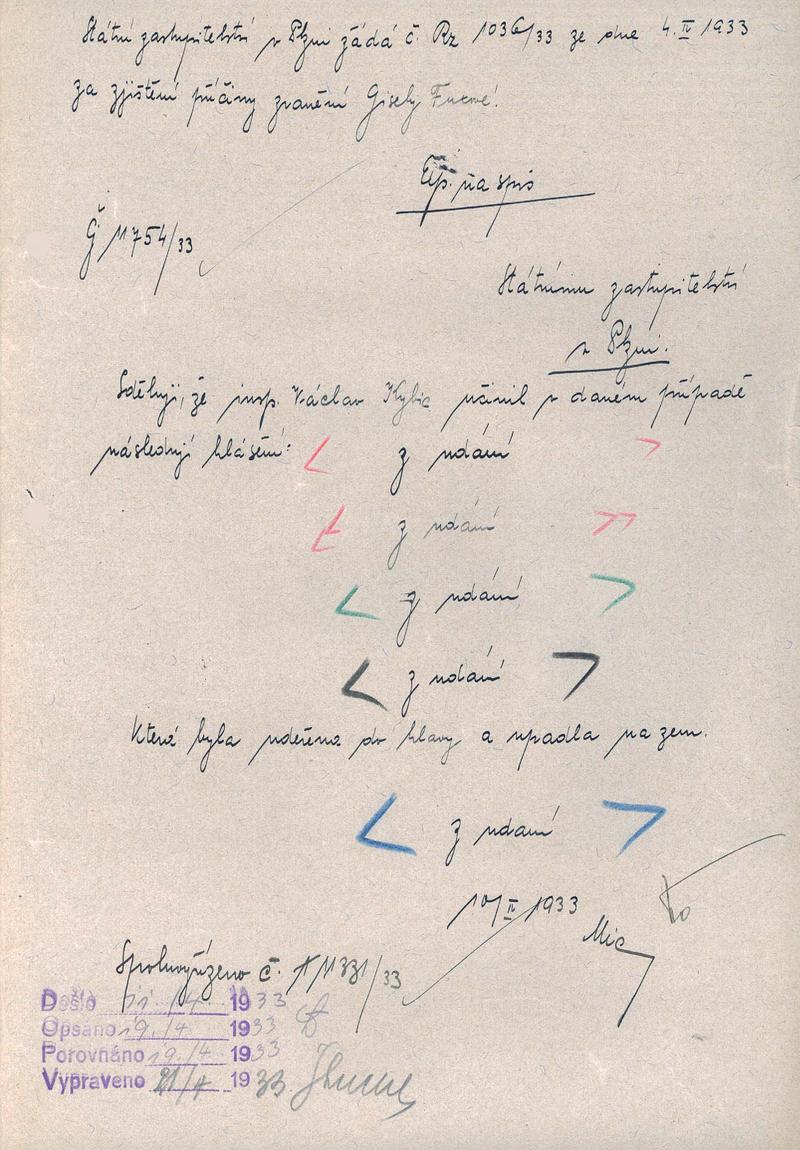 Státní zastupitelství v Plzni žádá č. Rz 1036/33 ze dne 4.II 1933
za zjištění příčiny zranění Gisely Fuxové.
Exp. na spis
Č 11754/33
Státnímu zastupitelství
v Plzni.
Sděluji, že insp. Václav Kybic učinil v daném případě
následující hlášení:
< z udání >
z udání
< z udání >
< z udání >
Která byla udeřena do hlavy a upadla na zem.
< z udání >
10/II 1933
Mic
Spoluvyřízeno č. 11331/33
Došlo /4. 1933
Opsáno 19./4 1933
Porovnáno 19./4 1933
Vypraveno 21/4 1933